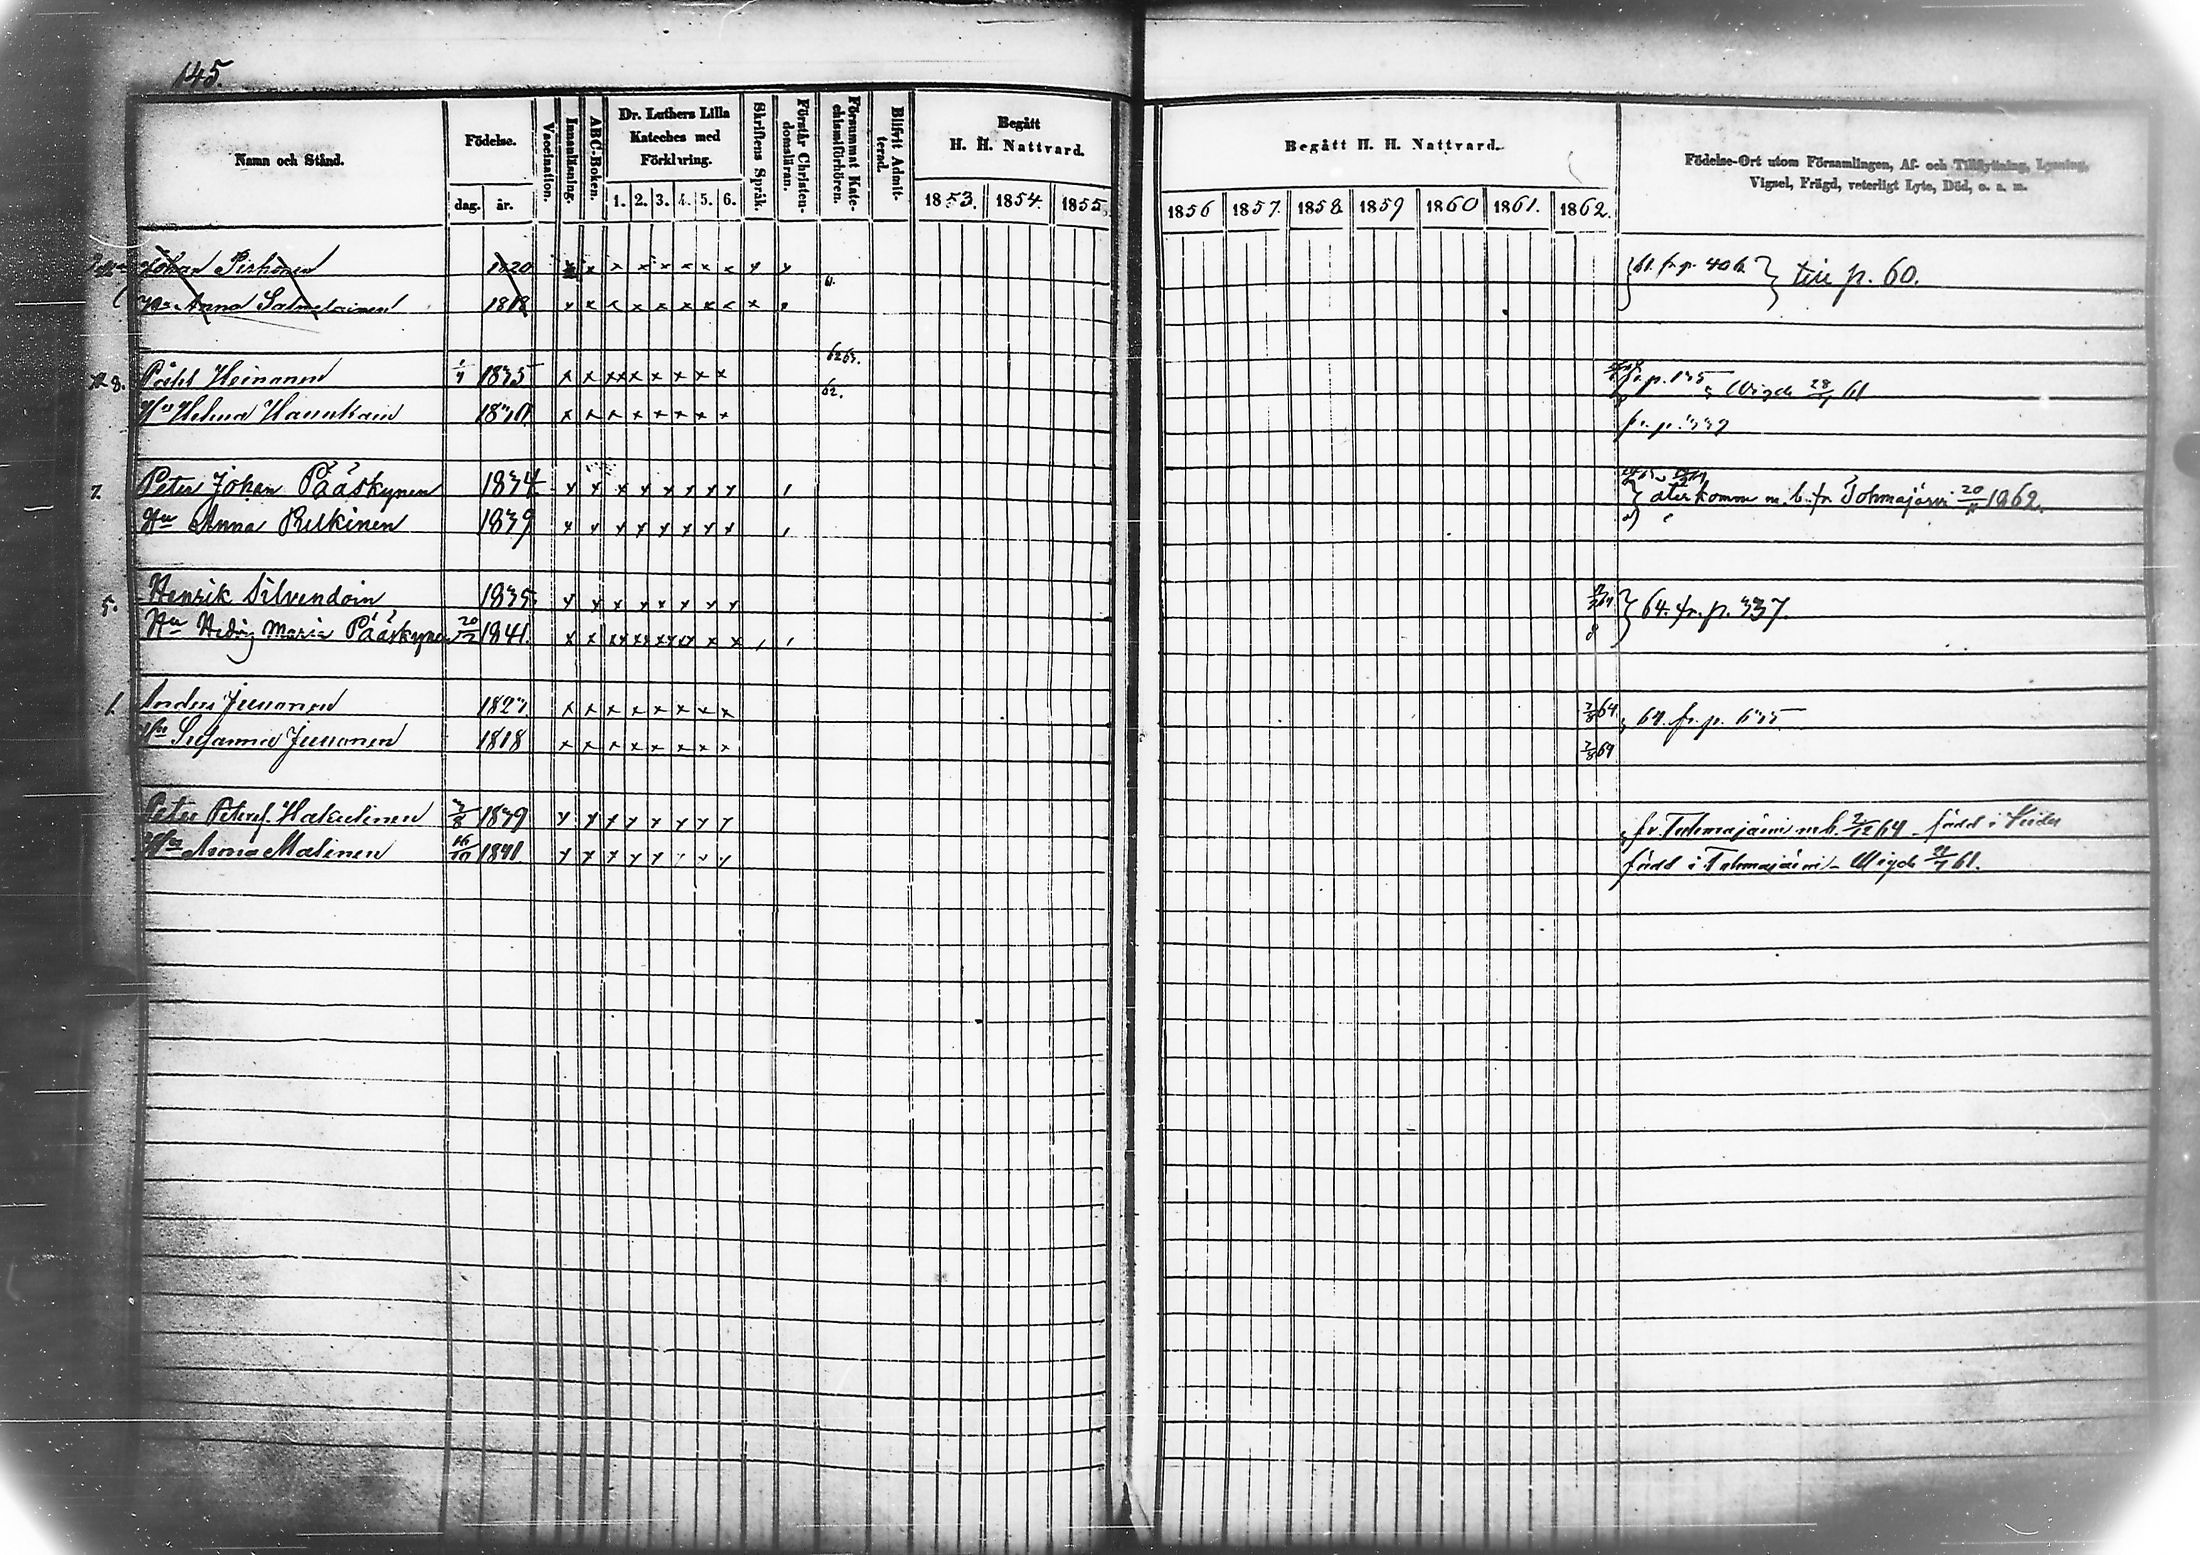 145.
Namn och Stånd.
Födelse.
dag. år.
Vaccination.
Innanläsning.
ABC-Boken.
Dr. Luthers Lilla Kateches med Förklaring.
1. 2. 3. 4. 5. 6.
Skriftens Språk.
Förstår Christendomsläran.
Försummat Katechismiförhören.
Blifvit Admitterad.
Begått H. H. Nattvard.
1853. 1854. 1855.
Begått H. H. Nattvard.
1856 1857. 1858 1859 1860 1861. 1862.
Födelse-Ort utom Församlingen, Af- och Tillflyttning, Lysning,
Vigsel, Frägd, veterligt Lyte, Död, o. s. m.
Johan Pirhonen 1820 x x x x x x x x 61. fr. p. 40 till p. 60.
Anna 1818 x x x x x x x x x
8. Påhl Heinonen 1835 x x x x x x x x 62 63. fr. p. Wigde 28/ 61
Hu Helena x x x x x x x x 62. fr. p. 339
Peter Johan Pääskynen 1834 x x x x x x x x återkomm m. b. fr Tohmajärvi 20/ 1862.
Hu Anna 1839 x x x x x x x x
5. Henrik Silvendoin 1835 x x x x x x x x 64. fr. p. 337.
Hu Hedvig Maria Pääskynen 20/2 1841.
1. Anders Jussonen 1827 x x x x x x x x 64. 64. fr. p.
Hu Susanna Jussonen 1818 x x x x x x x x 64
Peter Petersf. Hakulinen 1839 x x x x x x x x fr. Tohmajärvi m. b. 2/12 64 född i
Hu Anna Malinen 16/10 1841. x x x x x x x x född i Tohmajärvi - Wigde 61.